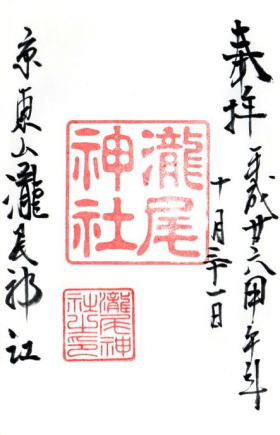 奉拝 平成廿六甲午年
十月三十一日
瀧尾
神社
瀧尾神
社之印
京東山瀧尾神社